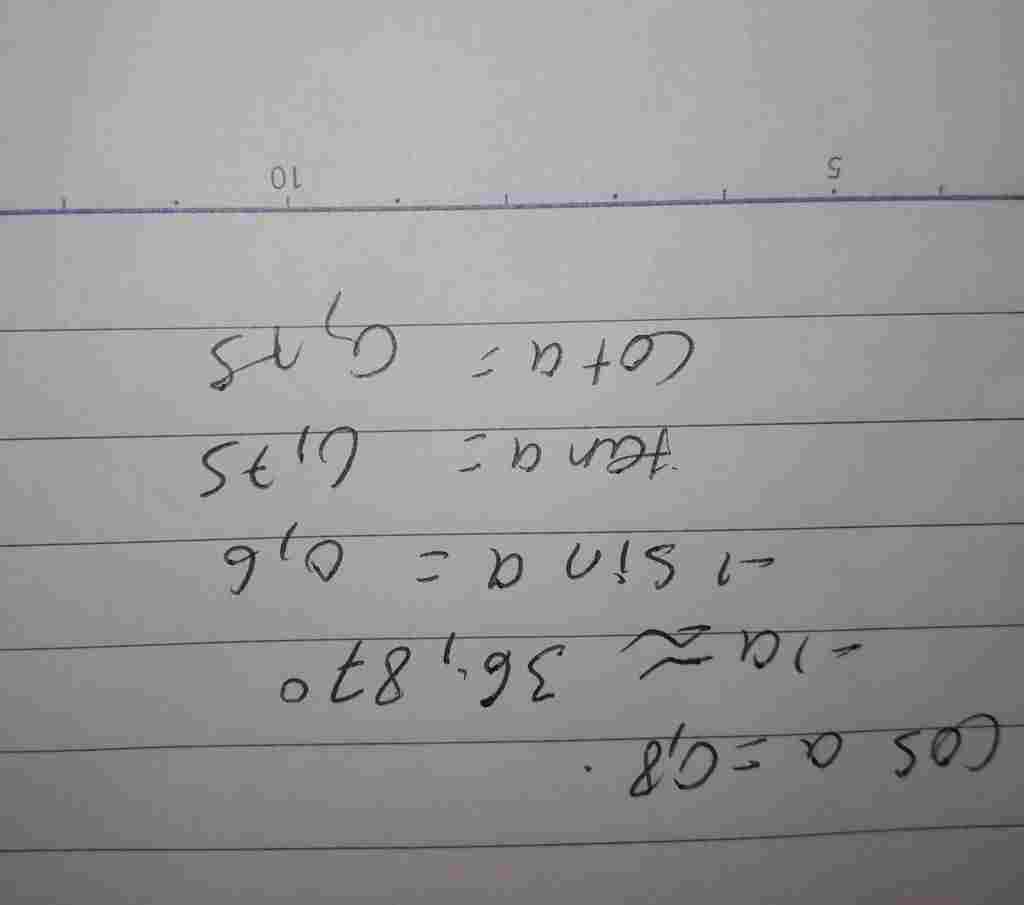 cos a = 0,8.
-1 a ≈ 36,87°
-1 sin a = 0,6
tan a = 0,75
cot a = 0,75
5 10